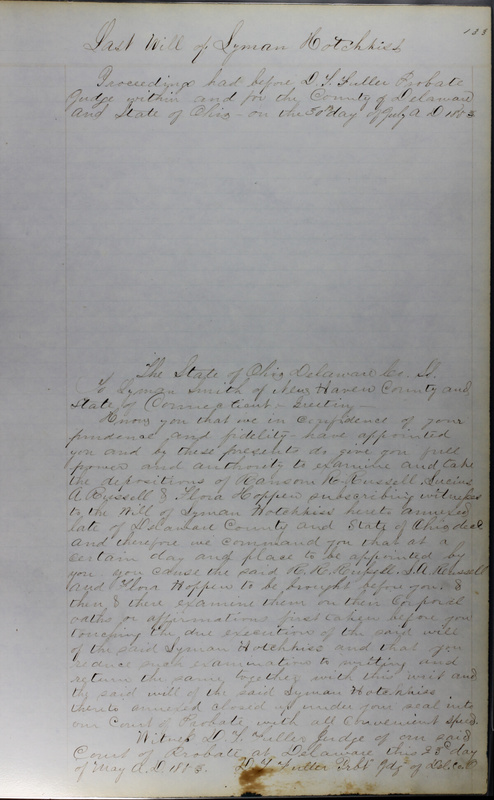 133
Last Will of Lyman Hotchkiss
Proceedings had before D. T. Fuller Probate
Judge within and for the County of Delaware
and State of Ohio on the 30th day of July A D 18
The State of Ohio Delaware Co. Ss.
To Lyman Smith of New Haven County and
State of Connecticut – Greeting –
Know you that we in confidence of your
prudence and fidelity have appointed
you and by these presents do give you full
power and authority to examine and take
the depositions of Ransom Russell Lucius
A Russell & Flora Hoppen subscribing witnesses
to the Will of Lyman Hotchkiss hereto annexed
late of Delaware County and State of Ohio decd
and therefore we command you that at a
certain day and place to be appointed by
you you cause the said R. R. Russell L. A. Russell
and Flora Hoppen to be brought before you &
then & there examine them on their Corporal
oaths or affirmations first taken before you
touching the due execution of the said will
of the said Lyman Hotchkiss and that you
reduce such examinations to writting and
return the same together with this writ and
the said will of the said Lyman Hotchkiss
thereto annexed closed up under your seal into
our Court of Probate with all Convenient speed.
Witness D. T. Fuller Judge of our said
Court of Probate at Delaware this 23d day
of May A. D. 18 D. T. Fuller Prbt Jdg of Del. Co. O